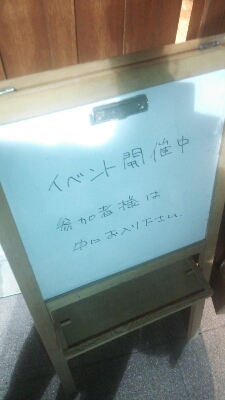 イベント開催中
参加者様は
中にお入り下さい